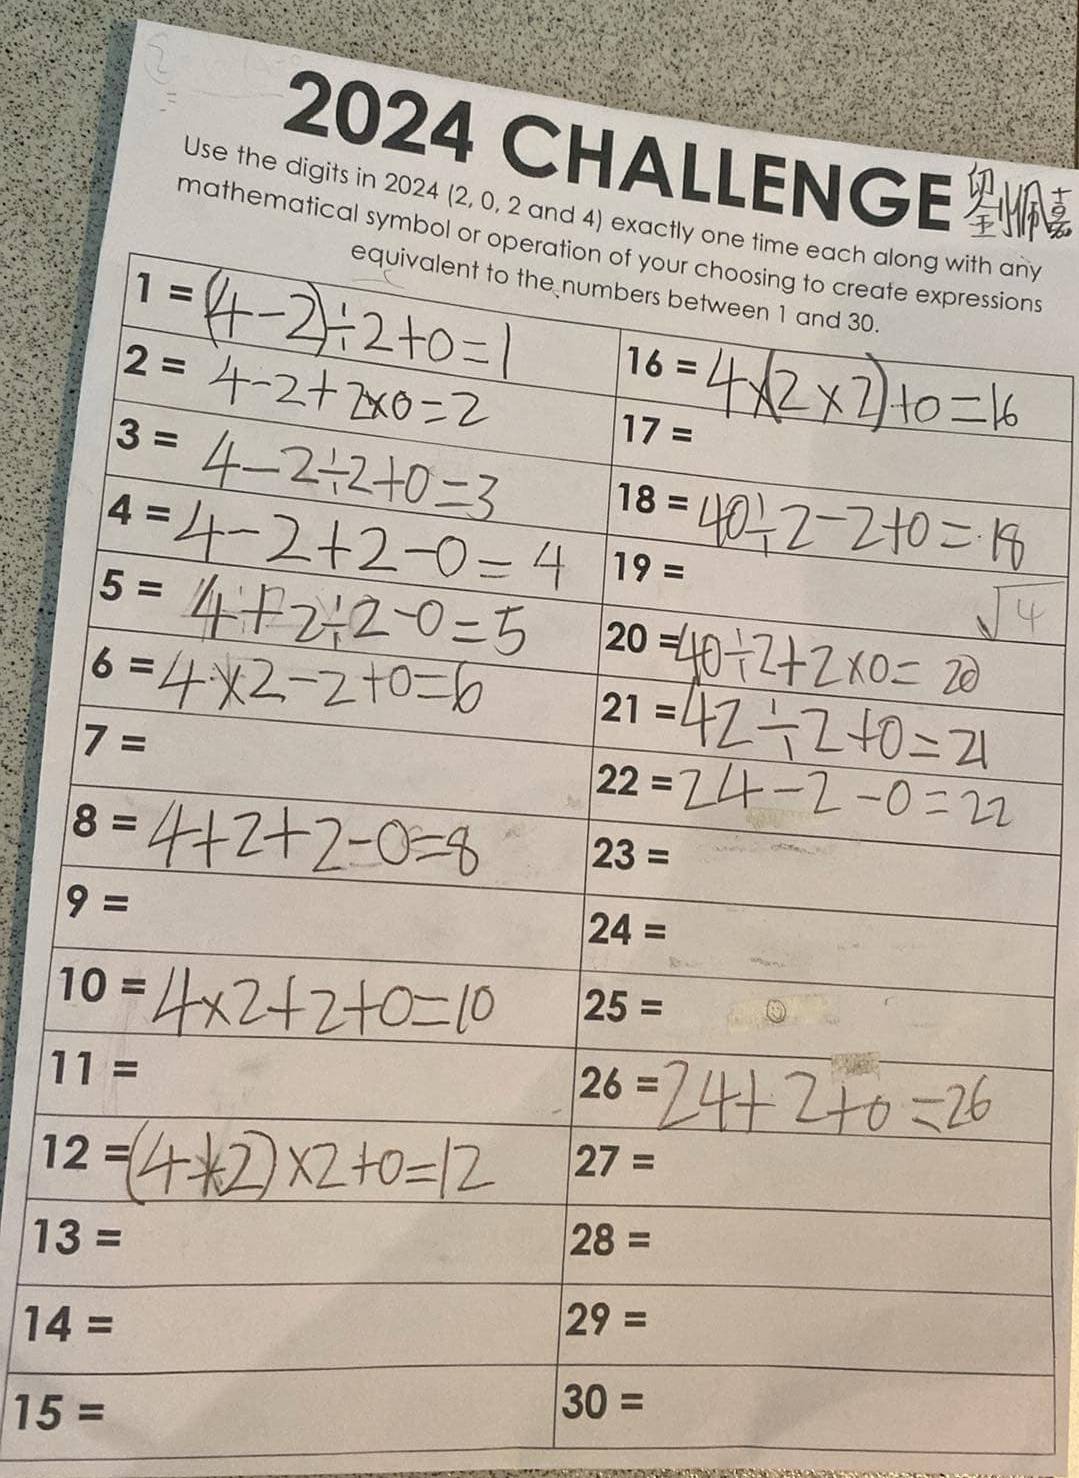 2024 CHALLENGE
Use the digits in 2024 (2, 0, 2 and 4) exactly one time each along with any
mathematical symbol or operation of your choosing to create expressions
equivalent to the numbers between 1 and 30.
1 = (4-2)÷2+0=1
2 = 4-2+2×0=2
3 = 4-2÷2+0=3
4 = 4-2+2-0=4
5 = 4+2÷2-0=5
6 = 4×2-2+0=6
7 =
8 = 4+2+2-0=8
9 =
10 = 4×2+2+0=10
11 =
12 = (4+2)×2+0=12
13 =
14 =
15 =
16 = 4×(2×2)+0=16
17 =
18 = 40÷2-2+0=18
19 =
√4
20 = 40÷2+2×0=20
21 = 42÷2+0=21
22 = 24-2-0=22
23 =
24 =
25 =
26 = 24+2+0=26
27 =
28 =
29 =
30 =